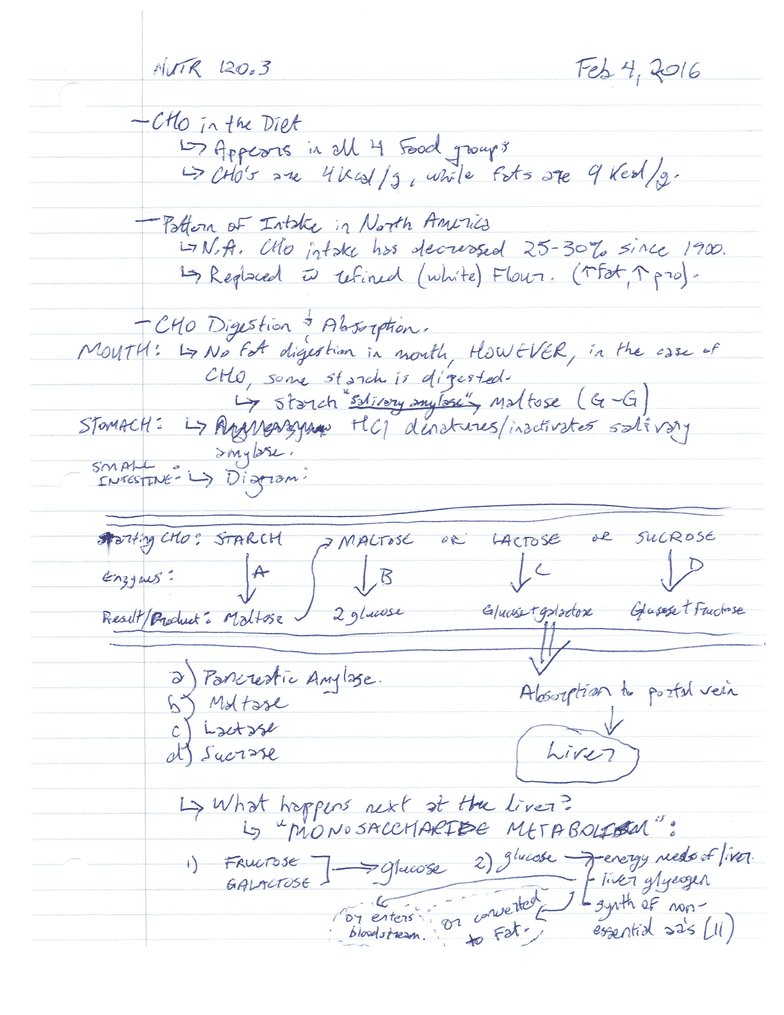 NUTR 120.3 Feb 4, 2016
- CHO in the Diet
↳ Appears in all 4 Food groups
↳ CHO's are 4 Kcal/g, while fats are 9 Kcal/g.
- Pattern of Intake in North America
↳ N.A. CHO intake has decreased 25-30% since 1900.
↳ Replaced w refined (white) Flour. (↑fat, ↑ pro).
- CHO Digestion & Absorption.
MOUTH: ↳ No fat digestion in mouth, HOWEVER, in the case of
CHO, some starch is digested.
↳ starch "salivary amylase" → maltose (G-G)
STOMACH: ↳ HCl denatures/inactivates salivary
amylase.
SMALL
INTESTINE: ↳ Diagram:
Starting CHO: STARCH → MALTOSE or LACTOSE or SUCROSE
Enzymes: ↓ A ↓ B ↓ C ↓ D
Result/Product: Maltose 2 glucose Glucose + galactose Glucose + Fructose
a) Pancreatic Amylase.
b) Maltase
c) Lactase
d) Sucrase
Absorption to portal vein
↓
Liver
↳ What happens next at the liver?
↳ "MONOSACCHARIDE METABOLISM":
1) FRUCTOSE
GALACTOSE → glucose
2) glucose → - energy needs of liver.
- liver glycogen
- synth of non-
essential aa's (11)
or enters
bloodstream.
or converted
to Fat.